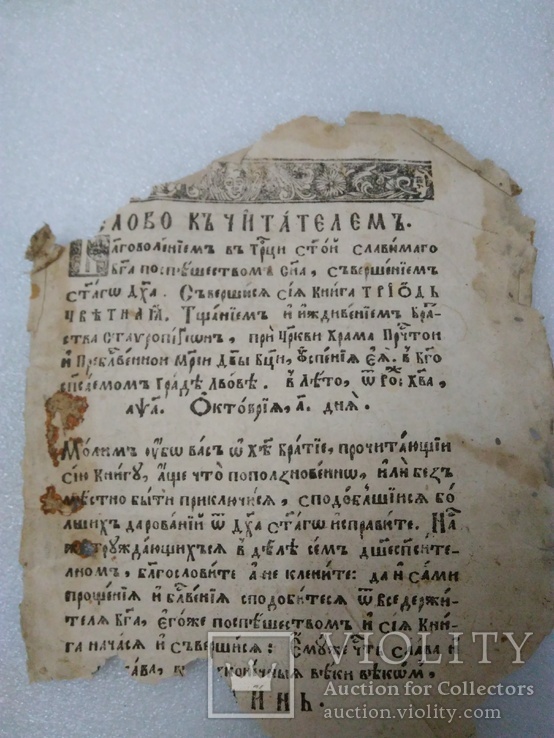 СЛОВО КЪ ЧИТА́ТЕЛЕМЪ.
Бл҃говоле́нїемъ въ Трⷪ҇ци ст҃о́й сла́вимаго
Бг҃а поспѣ́шествомъ Сн҃а, съверше́нїемъ
ст҃а́гѡ Дх҃а. Съверши́сѧ сїѧ̀ Кни́га ТРIѠ́ДЬ
ЦВѢ́ТНАѦ. Тща́нїемъ и҆ и҆ждиве́нїемъ Бра́т-
ства Ставропигїѡн: при Цр҃кви Храма Пречⷭ҇той
и҆ Пребл҃ве́нной Мр҃їи Дв҃ы Бц҃и, Ѹ҆спе́нїѧ Є҆Ѧ̀. в Бг҃о
сп҃са́емомъ Гра́дѣ Льво́вѣ. В лѣ́то, ѿ Рож: Хв҃а,
аѱа. Октоврїѧ, а. днѧ̀.
Мо́лимъ ѹ҆́бѡ ва́съ ѡ҆ Хѣ҃ бра́тїе, прочита́ющїи
сїю̀ кни́гу, а҆́ще что̀ пополꙁнове́ннѡ, и҆лѝ беꙁъ
мѣ́стно бы́ти приключи́сѧ, сподо́бльшїисѧ бо́-
лшихъ дарова́нїй ѿ Дх҃а ст҃а́гѡ и҆спра́вите. На́съ
же тружда́ющихсѧ в дѣ́лѣ се́мъ дш҃еспⷭ҇и́те-
лномъ, благослови́те а҆ не клени́те: да и҆ са́ми
проще́нїѧ и҆ бл҃ве́нїѧ сподо́битесѧ ѿ Вседержи́-
телѧ Бг҃а, є҆гѡ́же поспѣ́шествомъ и҆ сїѧ̀ Кни́-
га нача́сѧ и҆ съверши́сѧ: Є҆му́же че́сть сла́ва и҆
ва, в неконча́емыѧ вѣ́ки вѣкѡ́мъ,
МИ́НЬ.
VIOLITY
Auction for Collectors
auction.violity.com